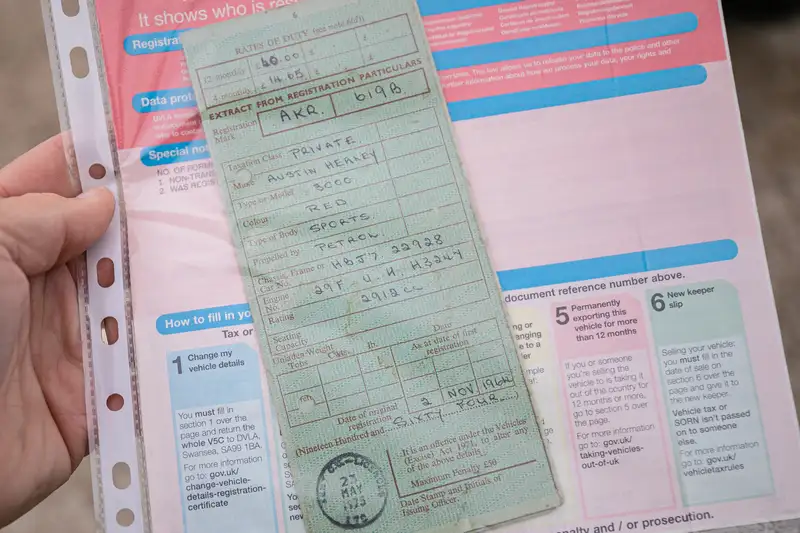 It shows who is
Registra
Data prot
Special no
NO. OF FORMER
1. NON-TRANS
2. WAS REGIS
RATES OF DUTY (see note 6(b))
12 monthly £ 40.00 £ £
4 monthly £ 14.65 £ £
EXTRACT FROM REGISTRATION PARTICULARS
Registration Mark
AKR. 619B
Taxation Class PRIVATE.
Make AUSTIN HEALEY
Type or Model 3000
Colour RED
Type of Body SPORTS.
Propelled by PETROL.
Chassis, Frame or Car No. HBJ7. 22928
Engine No. 29F. U. H. H3247
Rating 2912cc
Seating Capacity
Unladen Weight
Cwt. lb.
Date
Tons
As at date of first registration
Date of original registration
2 NOV 1964
(Nineteen Hundred and SIXTY FOUR)
It is an offence under the Vehicles (Excise) Act, 1971, to alter any of the above details.
Maximum Penalty £50
Date Stamp and Initials of Issuing Officer.
23
MAY
1973
document reference number above.
How to fill in yo
Tax or
1 Change my vehicle details
You must fill in
section 1 over the
page and return the
whole V5C to DVLA,
Swansea, SA99 1BA.
For more information
go to: gov.uk/
change-vehicle-
details-registration-
certificate
5 Permanently
exporting this
vehicle for more
than 12 months
If you or someone
you're selling the
vehicle to is taking it
out of the country for
12 months or more,
go to section 5 over
the page.
For more information
go to: gov.uk/
taking-vehicles-
out-of-uk
6 New keeper
slip
Selling your vehicle:
you must fill in the
date of sale on
section 6 over the
page and give it to
the new keeper.
Vehicle tax or
SORN isn't passed
on to someone
else.
For more information
go to: gov.uk/
vehicletaxrules
nalty and / or prosecution.